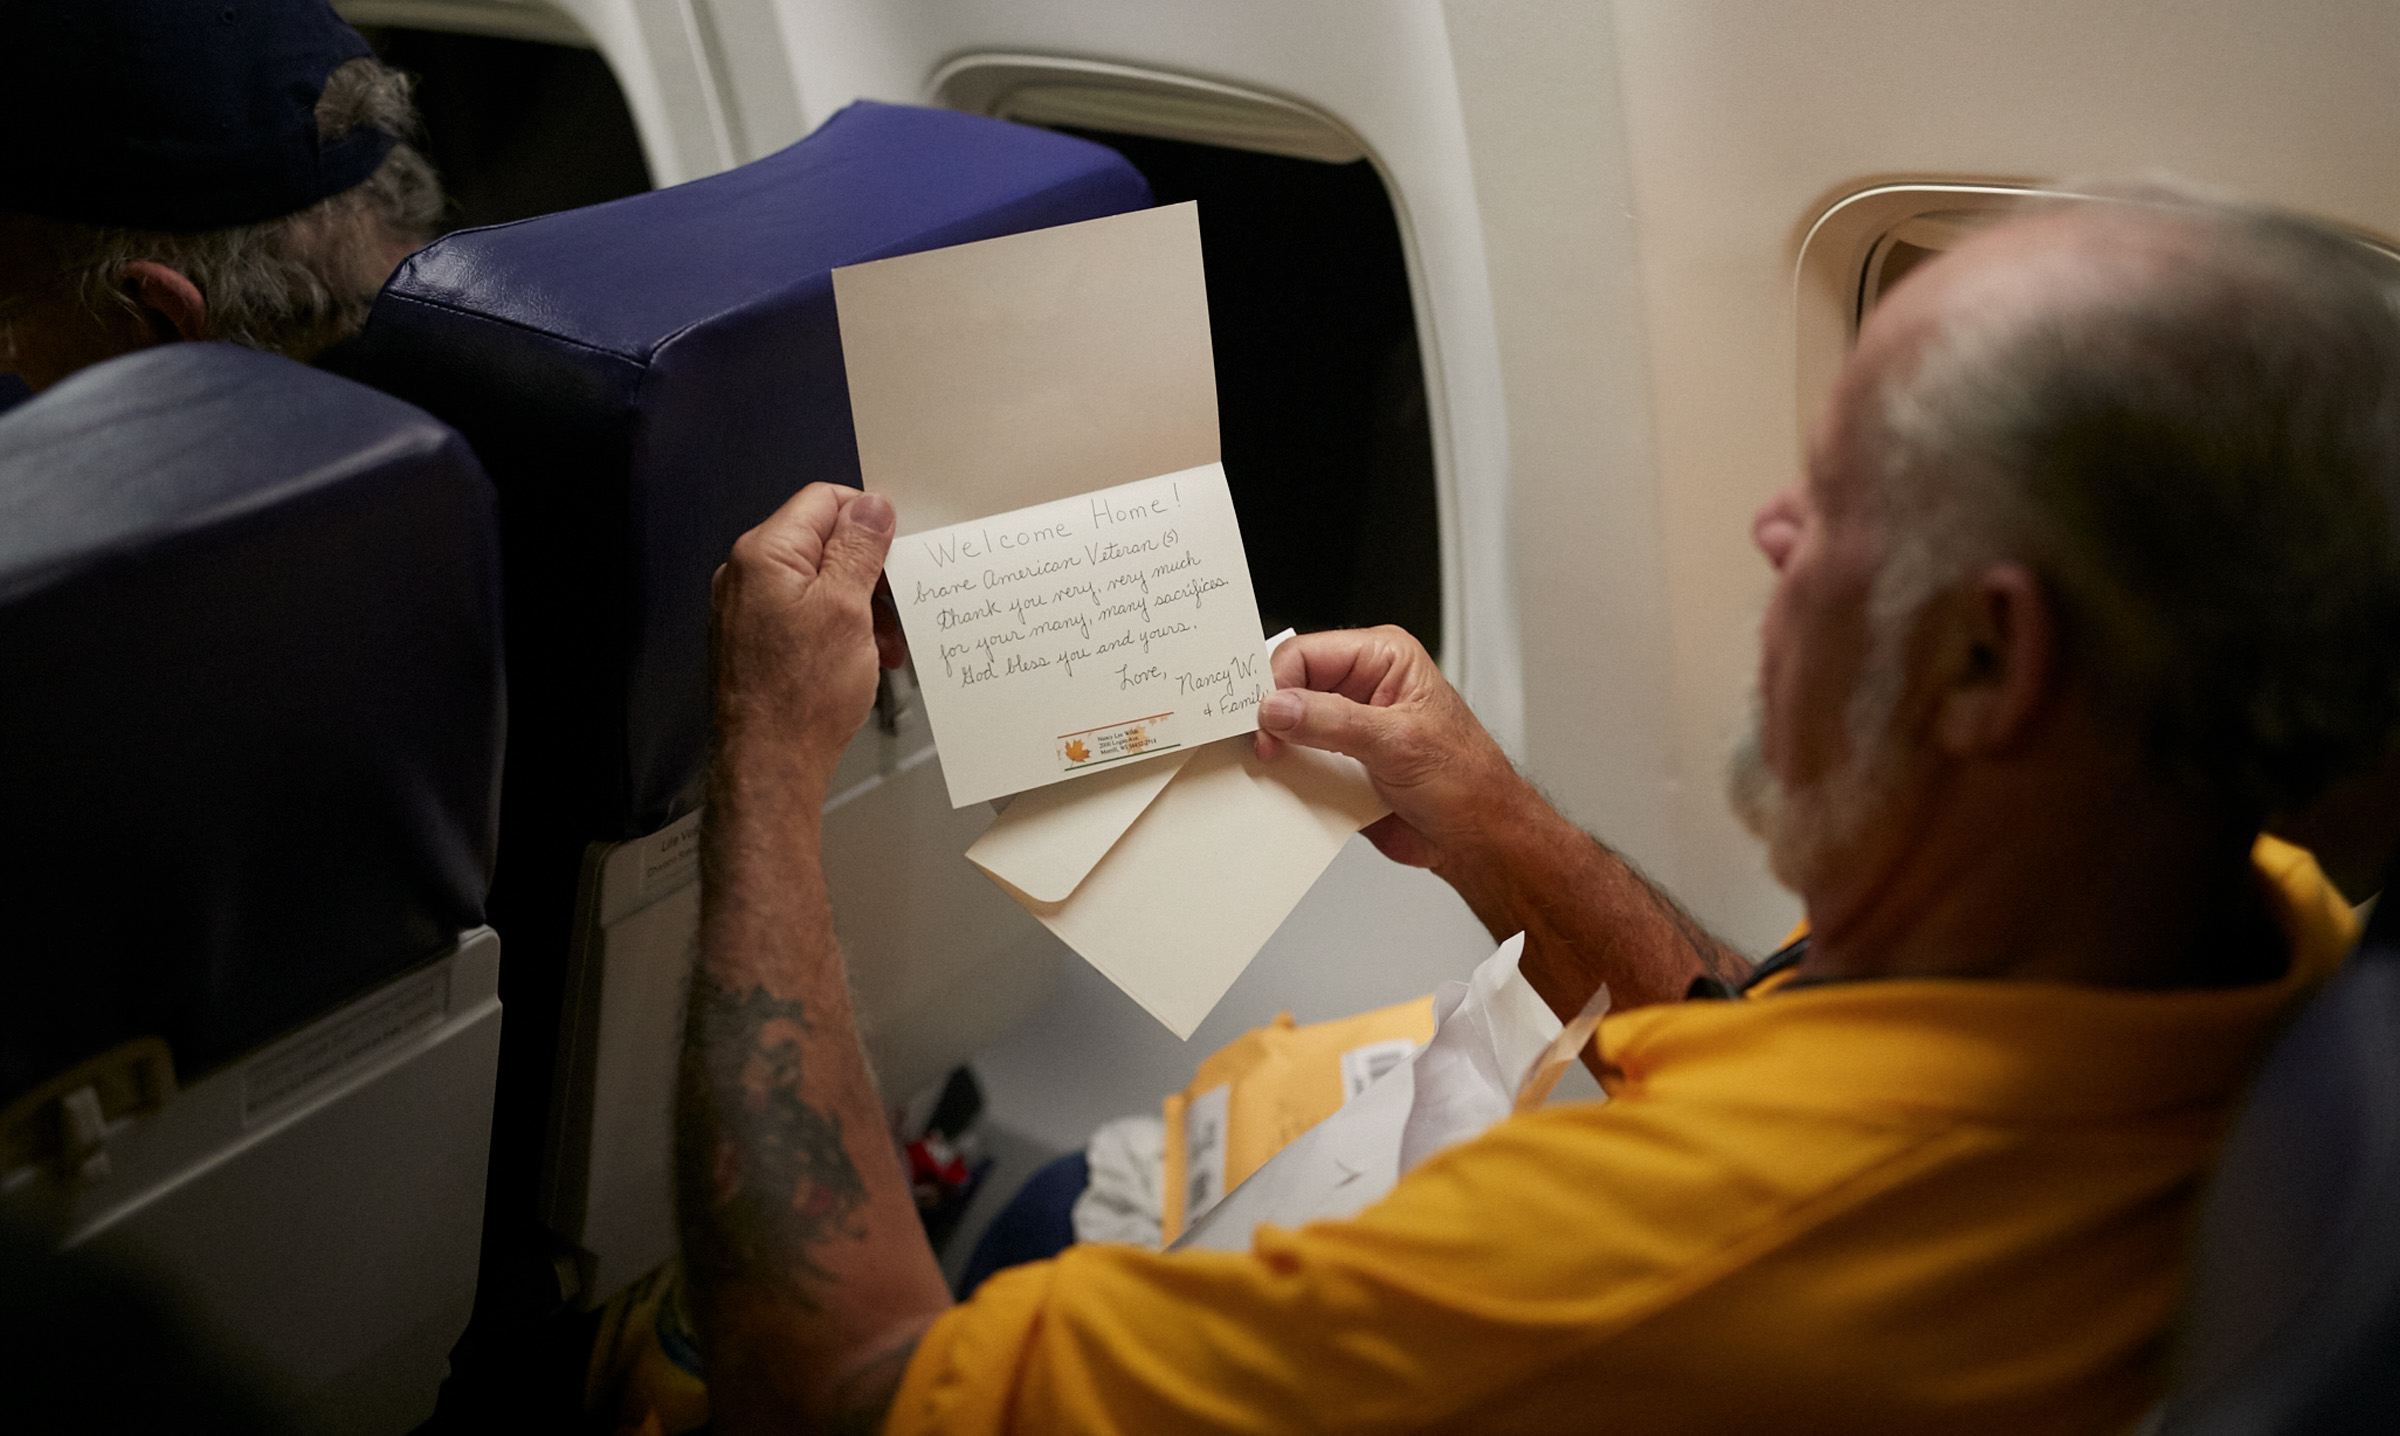 Welcome Home!
brave American Veteran(s)
Thank you very, very much
for your many, many sacrifices.
God bless you and yours.
Love,
Nancy W.
& Family
Nancy Lee Wilde
2000 Logan Ave.
Merrill, WI 54452-2914